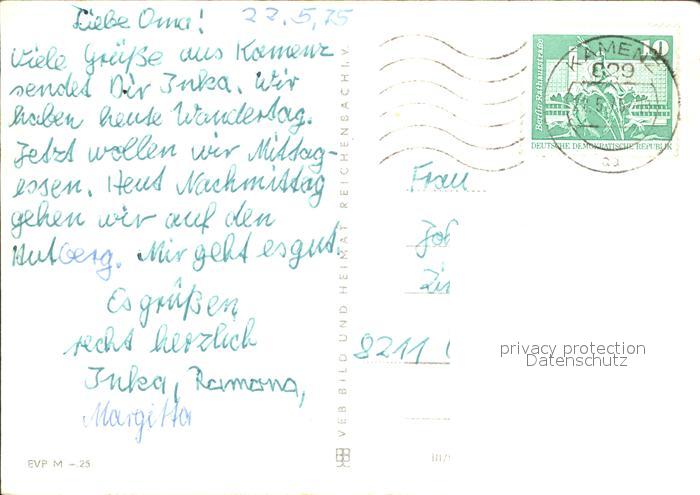 Liebe Oma! 22.5,75
Viele Grüße aus Kamenz
sendet Dir Inka. Wir
haben heute Wandertag.
Jetzt wollen wir Mittag-
essen. Heut Nachmittag
gehen wir auf den
Hutberg. Mir geht es gut.
Es grüßen
recht herzlich
Inka, Ramona,
Margitta
EVP M –.25
VEB BILD UND HEIMAT REICHENBACH I. V.
KAMENZ
829
10
Berlin, Rathausstraße
DEUTSCHE DEMOKRATISCHE REPUBLIK
Frau
8211
privacy protection
Datenschutz